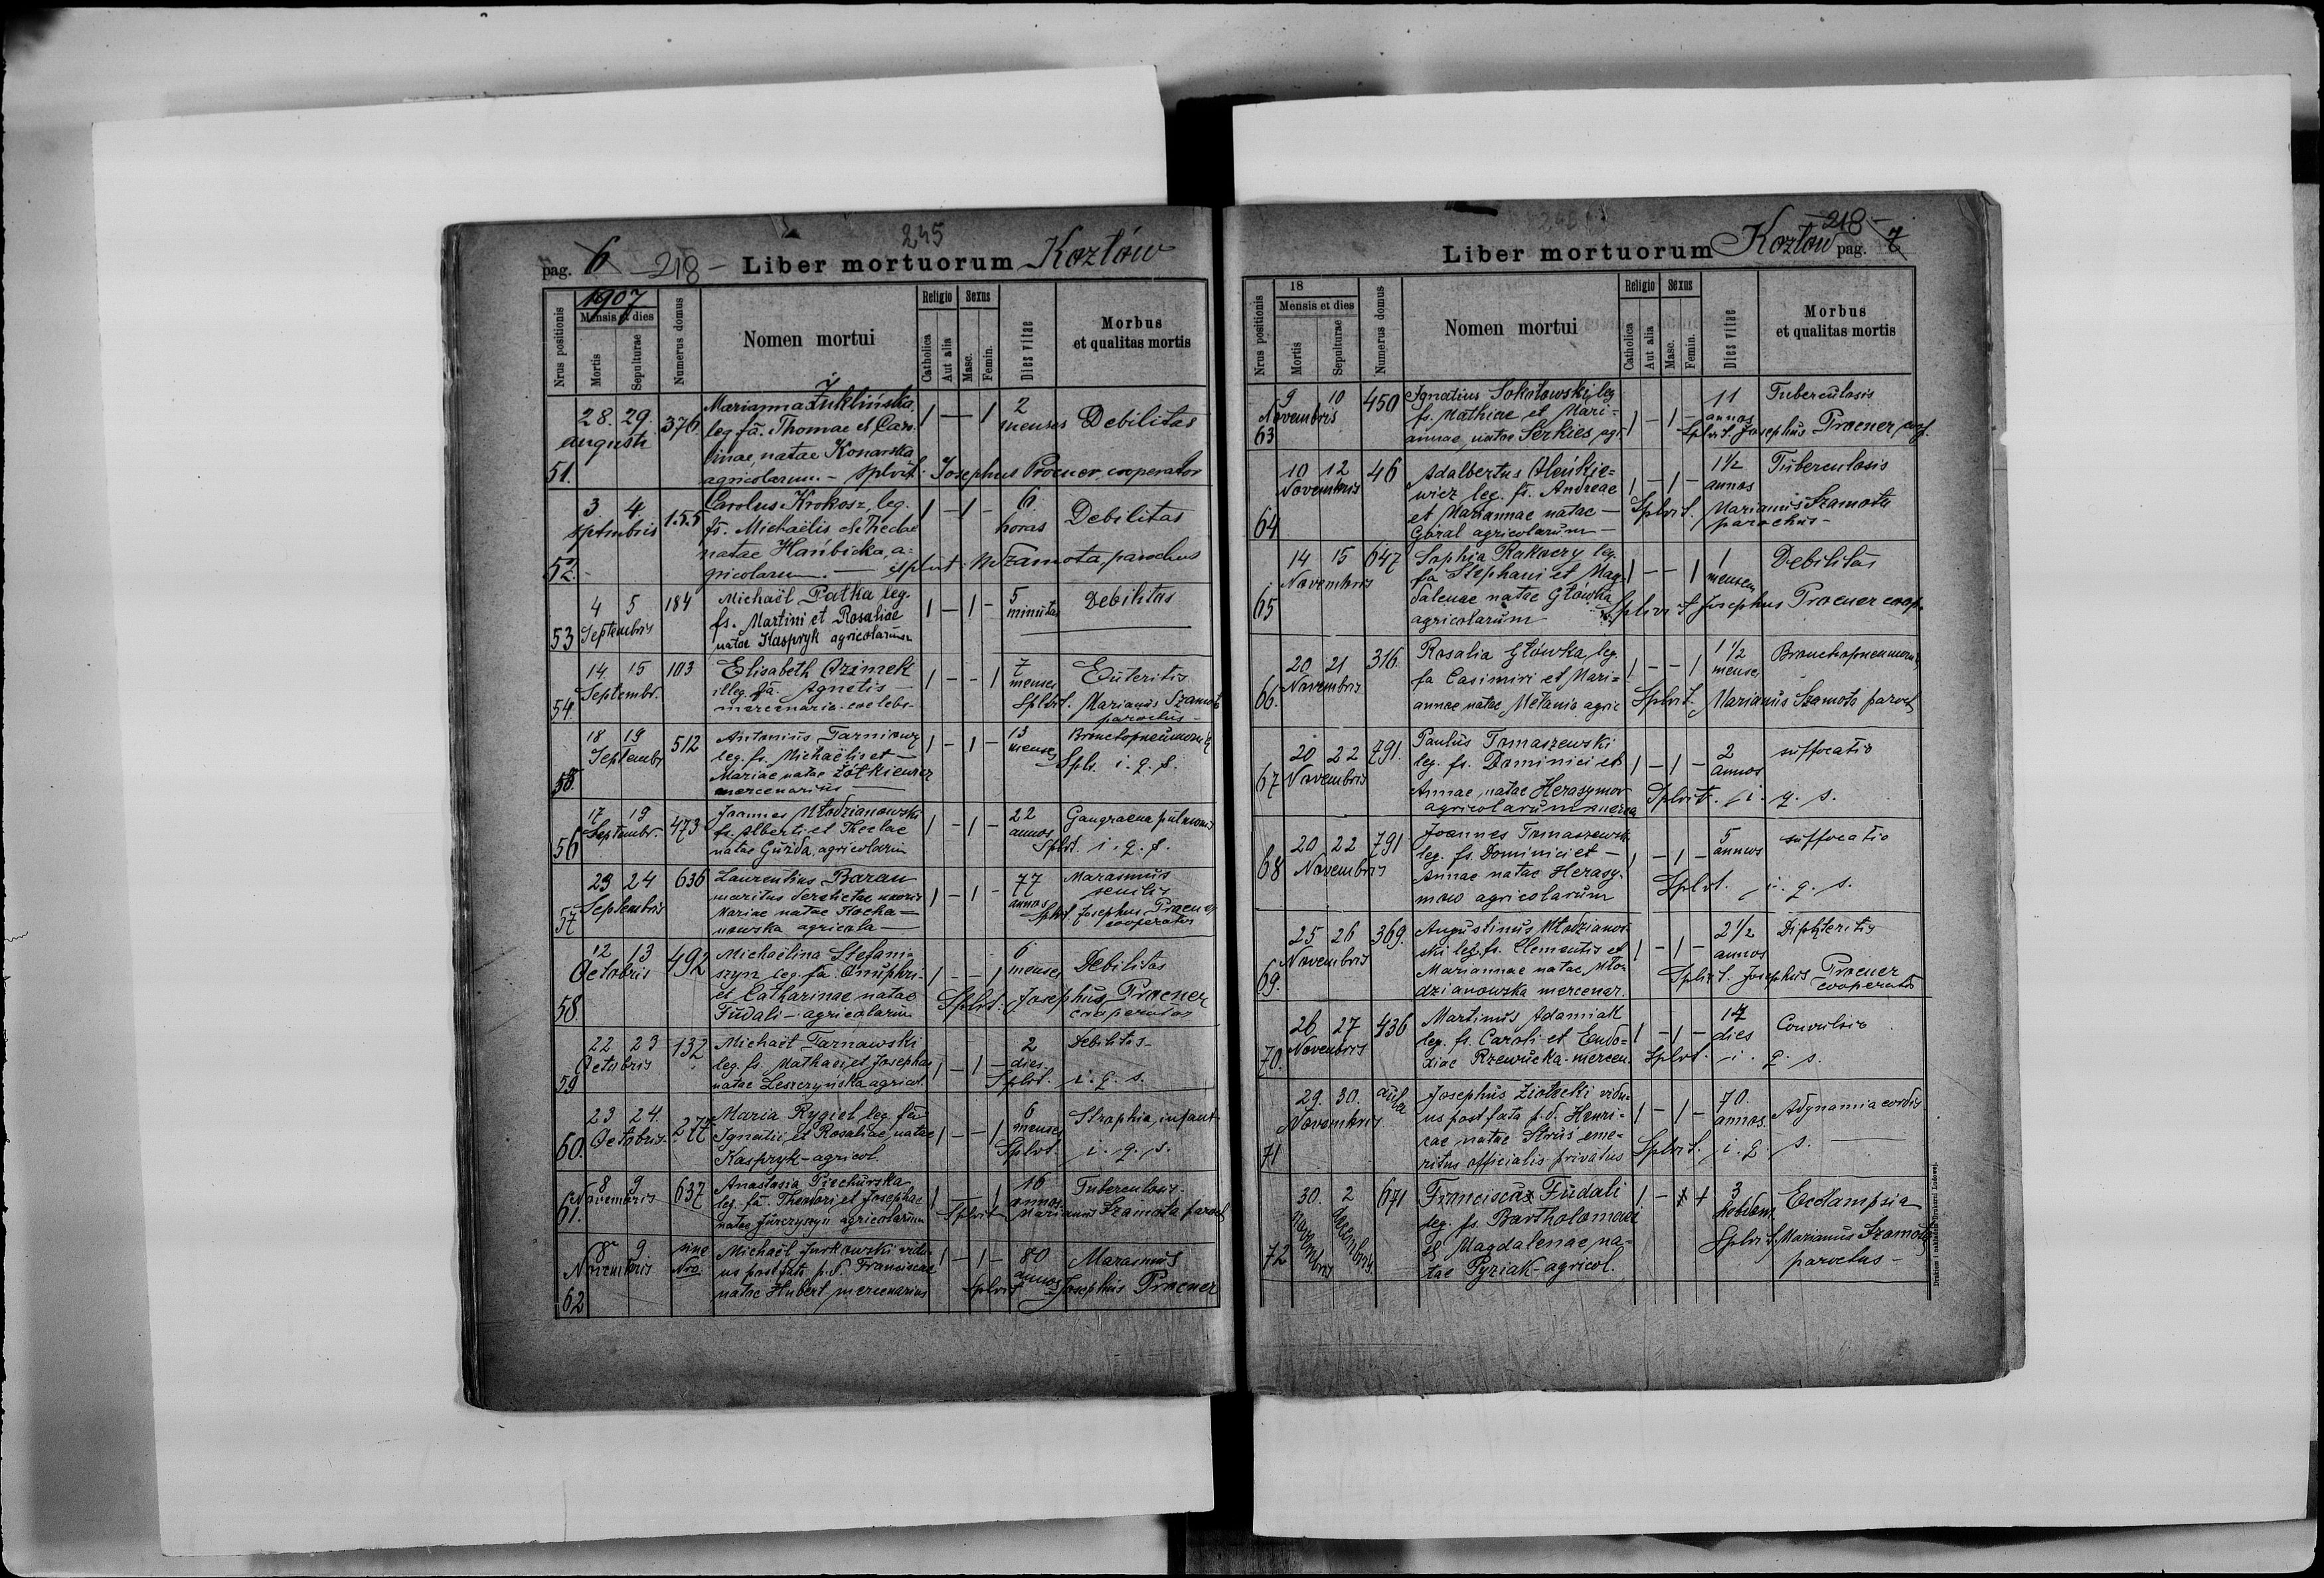 245
pag. 6 -218- Liber mortuorum Kozłów
Nrus positionis
1907
Mensis et dies
Mortis
Sepulturae
Numerus domus
Nomen mortui
Religio
Catholica
Aut alia
Sexus
Masc.
Femin.
Dies vitae
Morbus
et qualitas mortis
28. 29. 376. Marianna Żuklińska, 1 — 1 2 Debilitas
augusti leg. fa. Thomae et Caro- menses
linae, natae Konarska
51. agricolarum. - Splvit. Josephus Procner, cooperator
3. 4. 155 Carolus Krokosz, leg. 1 - 1 - 6 Debilitas
Septembris fs. Michaëlis et Theclae horas
natae Hańbicka, a-
52. gricolarum. — Splvit. M Szamota, parochus
4 5 184 Michaël Patka leg. 1 - 1 - 5 Debilitas
Septembris fs. Martini et Rosaliae minutas
53 natae Kaspryk agricolarum
14. 15 103 Elisabeth Ozimek 1 - - 1 7 Enteritis
Septembr. illeg. fa. Agnetis — menses
54. mercenaria coelebs - Splvit. Marianus Szamota
parochus -
18 19 512 Antonius Tarnowy 1 - 1 - 13 Bronchopneumonia
Septembr leg. fs. Michaëlis et — menses
Mariae natae Żółkiewicz Splv. i. q. s.
55. mercenarius —
17 19 473 Joannes Młodzianowski 1 - 1 - 22 Gangraena pulmonis
Septembr. fs. Alberti et Theclae annos
56 natae Guzda, agricolarum Splvt. i. q. s.
23 24 636 Laurentius Baran 1 - 1 - 77 Marasmus
Septembris maritus derelictae uxoris annos senilis
Mariae natae Kocha- Splvt. Josephus Procner
57 nowska agricola — cooperator
12 13 492 Michaëlina Stefani- 1 - - 1 6 Debilitas
Octobris szyn leg. fa. Onuphri- menses
et Catharinae natae Splvt. Josephus Procner
58. Fudali - agricolarum cooperator
22 23 132 Michaël Tarnawski 1 - 1 - 2 Debilitas -
Octobris leg. fs. Mathaei et Josephae dies.
59 natae Leszczyńska agricol. Splvt. i. q. s.
23 24. 277 Maria Rygiel leg. fa 1 - - 1 6 Atrophia infant
Octobris Ignatii et Rosaliae, natae menses
60. Kaspryk - agricol. Splvt. i. q. s.
8 9 637 Anastasia Piechurska 1 - - 1 16 Tuberculosis
Novembris leg. fa. Theodori et Josephae annos
61. natae Jurczyszyn agricolarum Splvit Marianus Szamota paroch
8 9. sine Nro. Michaël Jurkowski vidu- 1 - 1 - 80 Marasmus
Novembris us post fata p. d. Franciscae annos
62 natae Hubert, mercenarius Splvit Josephus Procner
Liber mortuorum Kozłów -218- pag. 7
Nrus positionis
18
Mensis et dies
Mortis
Sepulturae
Numerus domus
Nomen mortui
Religio
Catholica
Aut alia
Sexus
Masc.
Femin.
Dies vitae
Morbus
et qualitas mortis
9 10 450 Ignatius Sokołowski, leg 1 - 1 - 11 Tuberculosis
Novembris fs. Mathiae et Mari- annos
63 annae, natae Serkies, agr. Splvit. Josephus Procner, coop.
10 12 46 Adalbertus 1 - 1 - 1½ Tuberculosis
Novembris wicz leg. fs. Andreae annos
et Mariannae natae — Splvit. Marianus Szamota
64 Góral agricolarum — parochus -
14 15 647 Sophia Rakoczy leg. 1 - - 1 1 Debilitas
Novembris fa Stephani et Mag- mensem
dalenae natae Główka Splvit Josephus Procner coop.
65 agricolarum
20 21 316 Rosalia Główka, leg. 1 - - 1 1½ Bronchopneumoni
Novembris fa Casimiri et Mari- menses
66. annae natae Metanio agric Splvit. Marianus Szamota paroch
20 22 791. Paulus Tomaszewski 1 - 1 - 2 suffocatio
Novembris leg. fs. Dominici et annos
Annae, natae Herasymow Splvit. i. q. s.
67 agricolarum
20 22 791 Joannes Tomaszewski 1 - 1 - 5 suffocatio
Novembris leg. fs. Dominici et — annos
Annae natae Herasy- Splvt. i. q. s.
68 mow agricolarum
25 26 369. Augustinus Młodzianow- 1 - 1 - 2½ Diphteritis
Novembris ski leg. fs. Clementis et annos
Mariannae natae Mło- Splvit. Josephus Procner
69. dzianowska mercenar. cooperator
26 27 436 Martinus Adamiak 1 - 1 - 14 Convulsio
Novembris leg. fs. Caroli et Eudo- dies
70. xiae Rzewucka mercen. Splvt. i. q. s.
29. 30. aula Josephus Ziołecki vidu- 1 - 1 - 70. Adynamia cordis
Novembris us post fata p. d. Henri- annos.
cae natae Struś eme- Splvit. i. q. s. —
71 ritus officialis privatus
30. 2 671 Francisca Fudali 1 - 1 3 Ecclampsia
Novembris Decembris leg. fs. Bartholomaei hebdom.
et Magdalenae na- Splvit. Marianus Szamota
72 tae Pyziak - agricol. parochus -
Drukiem i nakładem Drukarni Ludowej.